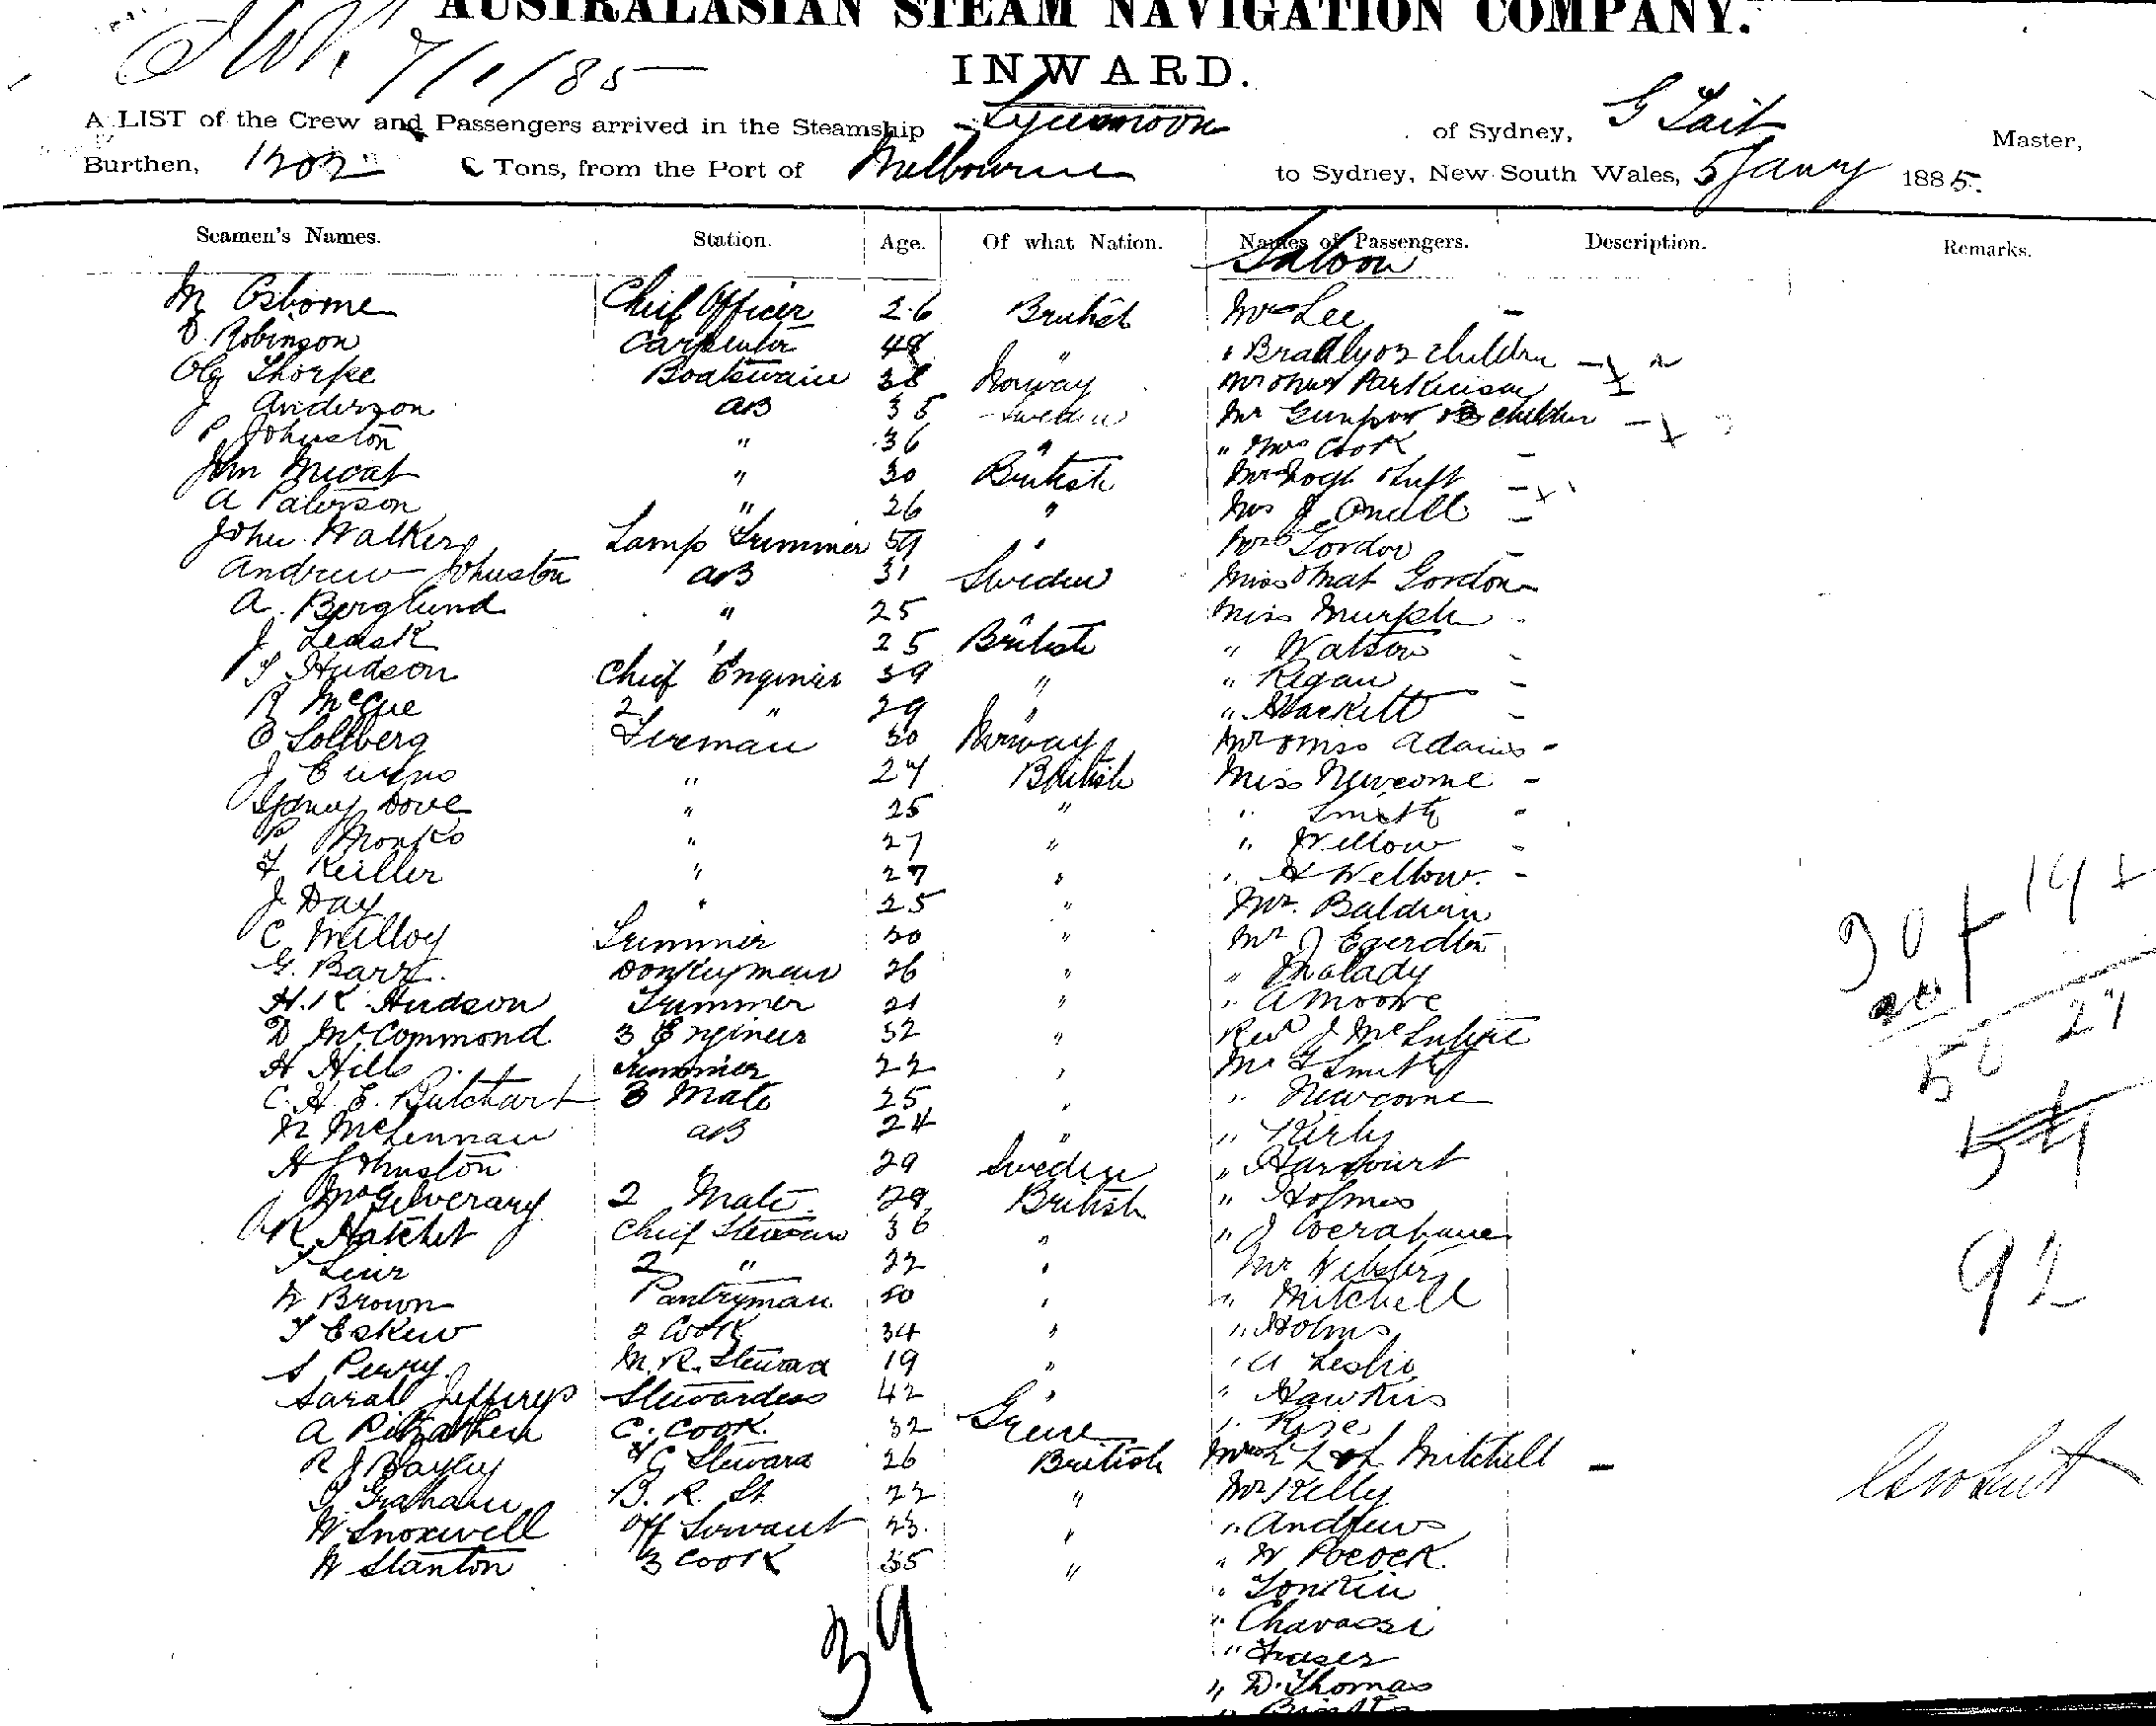 AUSTRALASIAN STEAM NAVIGATION COMPANY.
7/1/85
INWARD.
A LIST of the Crew and Passengers arrived in the Steamship Lyeemoon of Sydney, G Tait Master,
Burthen, 1202 Tons, from the Port of Melbourne to Sydney, New South Wales, 5 Jany 1885.
Seamen's Names. Station. Age. Of what Nation. Names of Passengers. Description. Remarks.
Saloon
M Osborne Chief Officer 26 British Mrs Lee -
D. Robinson Carpenter 48 " " Bradly & 2 children -
Ole Thorpe Boatswain 38 Norway Mr & Mrs Parkinson
J Anderson AB 35 Sweden Mr children -
P Johnston " 36 " " Mrs Cook -
John " 30 British
A Paterson " 26 " Mrs J Oneill -
John Walker Lamp Trimmer 59 " Mrs Gordon -
Andrew Johnston AB 31 Sweden Miss & Mast Gordon
A. Berglund " 25 Miss Murph
J Leask " 25 British " Watson -
T Hudson Chief Engineer 39 " " Regan -
R McCue 2 " 29 " " Hackett -
E Sollberg Fireman 30 Norway Mr & Miss Adams -
J Burns " 27 British Miss Newcome -
Sydney Dove " 25 " " Smith -
P Monks " 27 " " Wellow -
F Keiller " 27 " " H Wellow. -
J Day " 25 " Mr. Baldwin
C Milloy Trimmer 30 " Mr J Egerdton
G. Barr Donkeyman 26 " " Malady
H. K Hudson Trimmer 21 " " A Moore
D McCommond 3 Engineer 32 " Revd J McIntyre
H Hill Trimmer 22 " Mr F Smith
C. H. E. Butchart 3 Mate 25 " " Newcome
N McLennan AB 24 " " Kirby
H Johnston 29 Sweden " Harcourt
McGilverary 2 Mate 29 British " Holmes
R Hatchet Chief Steward 36 " " J
T Leir 2 " 22 " Mr Webster
W Brown Pantryman 50 " " Mitchell
T Eskew 2 Cook 34 " " Holms
S Perry M. R. Steward 19 " " A Leslie
Sarah Jeffreys Stewardess 42 " " Hawkins
A C. Cook. 32 Greece " Rise
R J Bayley F C Steward 26 British Mitchell -
T Graham B. R. St 22 " Mr Kelly
W Snoxwell Off Servant 23. " " Andrews
W Stanton 3 Cook 35 " " W Pocock.
" Tonkin
" Chavassi
" Fraser
" D. Thomas
39
30
20
50
27
92